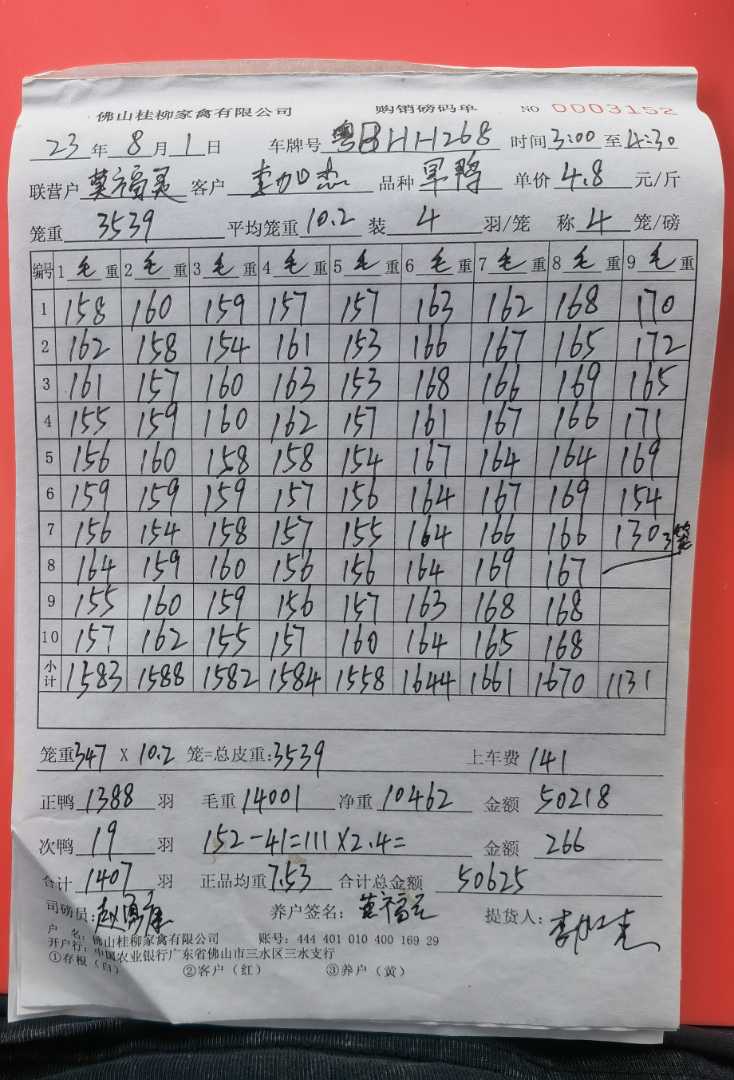 佛山桂柳家禽有限公司 购销磅码单 NO 0003152
23 年 8 月 1 日 车牌号 粤BHH268 时间 3:00 至 4:30
联营户 莫福灵 客户 李加杰 品种 旱鸭 单价 4.8 元/斤
笼重 3539 平均笼重 10.2 装 4 羽/笼 称 4 笼/磅
编号 1 毛 重 2 毛 重 3 毛 重 4 毛 重 5 毛 重 6 毛 重 7 毛 重 8 毛 重 9 毛 重
1 158 160 159 157 157 163 162 168 170
2 162 158 154 161 153 166 167 165 172
3 161 157 160 163 153 168 166 169 165
4 155 159 160 162 157 161 167 166 171
5 156 160 158 158 154 167 164 164 169
6 159 159 159 157 156 164 167 169 154
7 156 154 158 157 155 164 166 166 130 3笼
8 164 159 160 156 156 164 169 167
9 155 160 159 156 157 163 168 168
10 157 162 155 157 160 164 165 168
小计 1583 1588 1582 1584 1558 1644 1661 1670 1131
笼重 347 X 10.2 笼=总皮重: 3539 上车费 141
正鸭 1388 羽 毛重 14001 净重 10462 金额 50218
次鸭 19 羽 152-41=111×2.4= 金额 266
合计 1407 羽 正品均重 7.53 合计总金额 50625
司磅员: 赵勇康 养户签名: 莫福灵 提货人: 李加杰
户 名: 佛山桂柳家禽有限公司 账号: 444 401 010 400 169 29
开户行: 中国农业银行广东省佛山市三水区三水支行
①存根(白) ②客户(红) ③养户(黄)